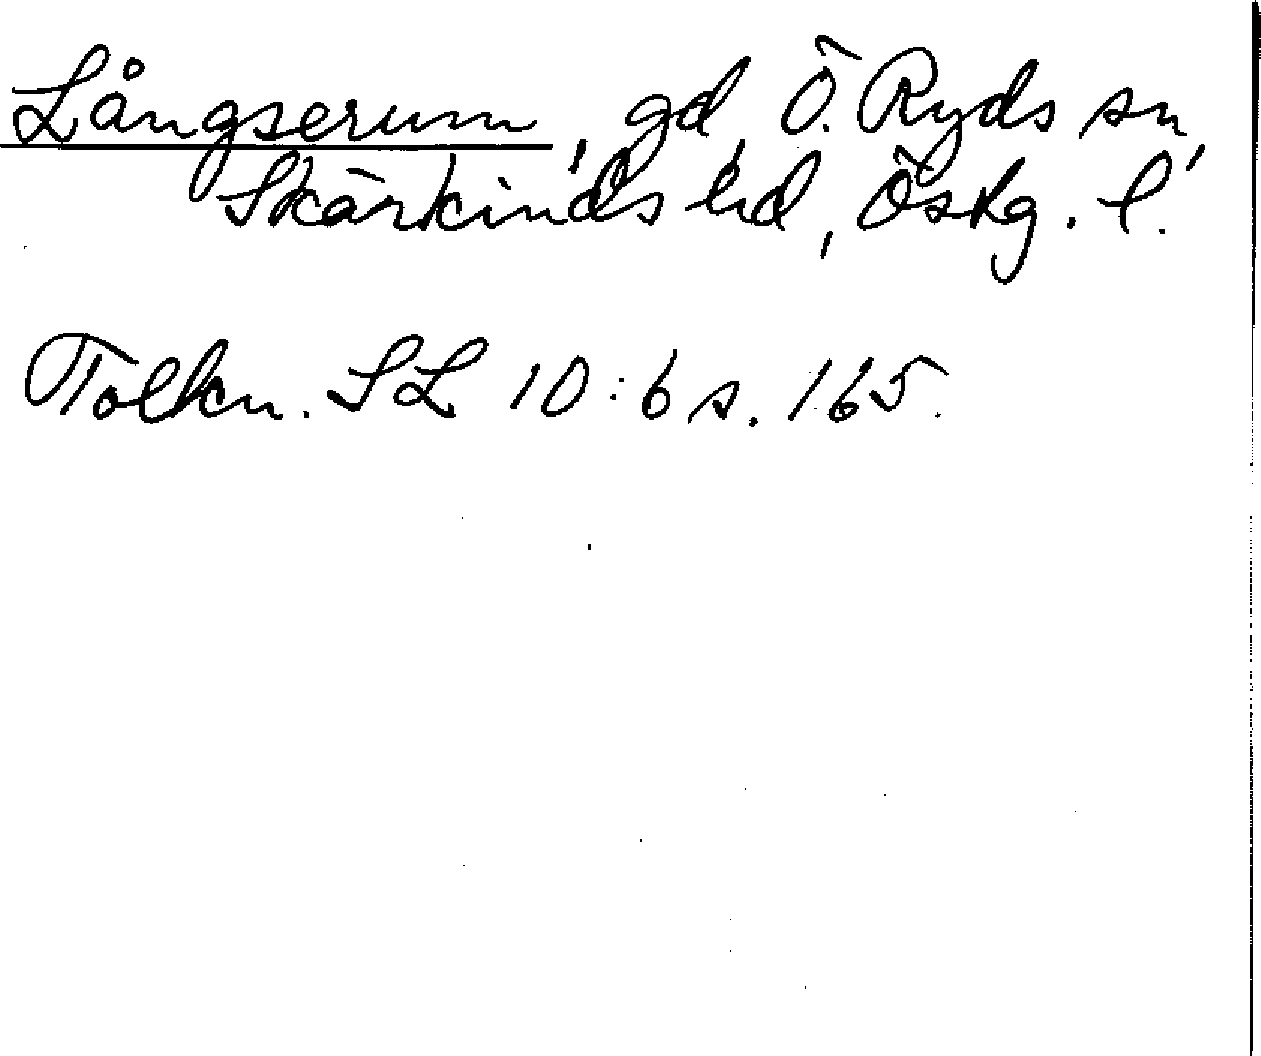 Långserum, gd, Ö. Ryds sn,
Skärkinds hd, Östg. l.
Tolkn. SL 10:6 s. 165.